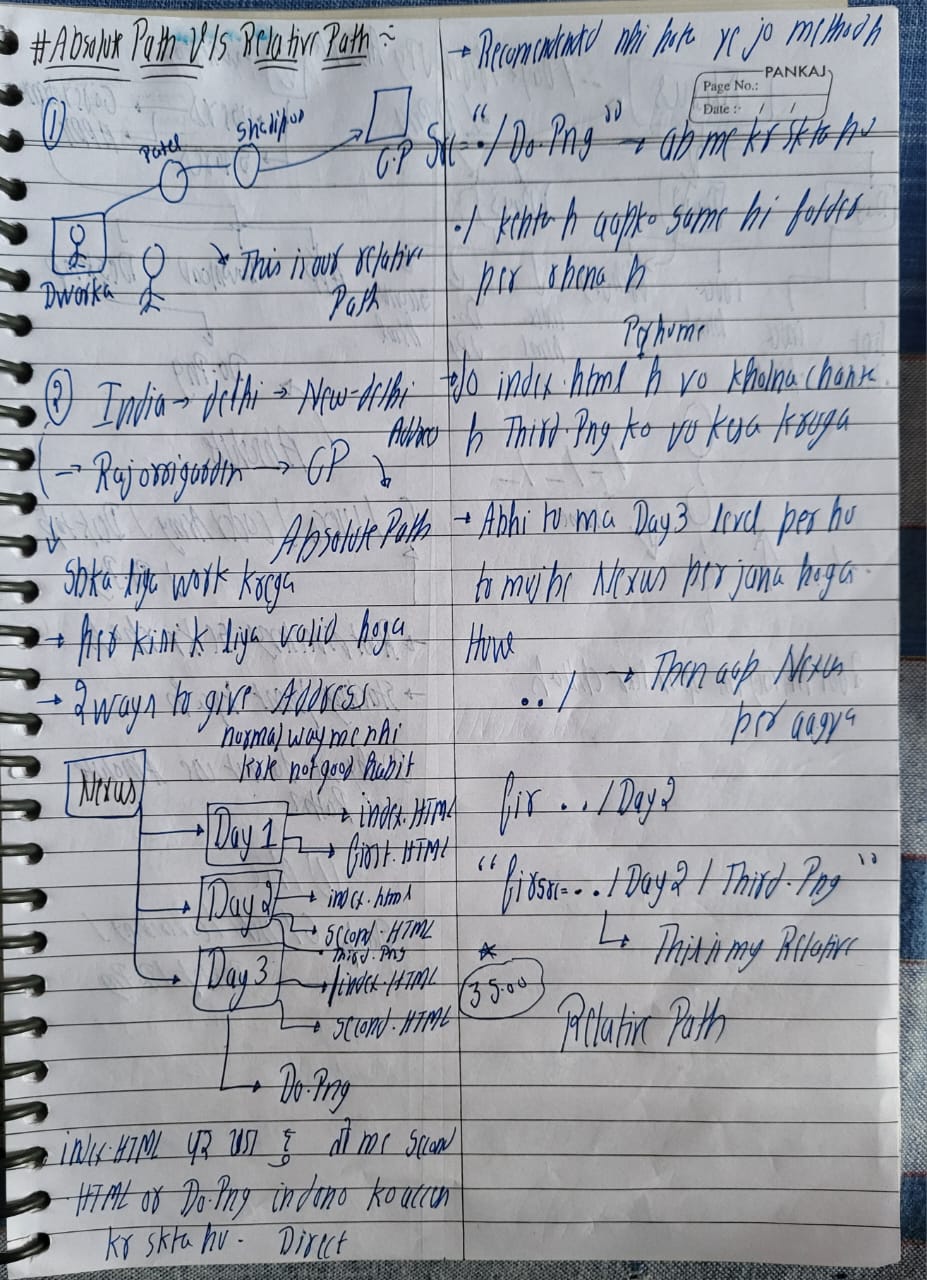 # Absolute Path V/s Relative Path :-
①
Patel
C.P
Dworka
→ This is our relative
Path
② India → delhi → New-delhi
Address
→ Rajorrigardin → CP
Absolute Path
Sbka liya work krega
→ her kisi k liya valid hoga
→ 2 ways to give Address
normal way me nhi
krte not good habit
Nexus
Day 1
→ index.HTML
→ first.HTML
Day 2
→ index.html
→ second.HTML
Third.Png
Day 3
→ index.HTML
→ second.HTML
→ Do.Png
index.HTML पर था हु तो me second
HTML or Do.Png in dono ko access
kr skta hu. Direct
→ Recommended nhi hota ye jo method h
PANKAJ
Page No.:
Date :- / /
Src= "./Do.Png" → ab me kr skta hu
./ kehta h aapko same hi folder
per rhena h
→ Jo index.html h vo kholna chahte
h Third.Png ko vo kya kruga
→ Abhi to ma Day3 level per hu
to mujhe Nexus per jana hoga.
../ → Then aap Nexus
per aagya
fir ../Day2
"fir src= ../Day2/Third.Png"
↳ This is my Relative
*
35:00
Relative Path